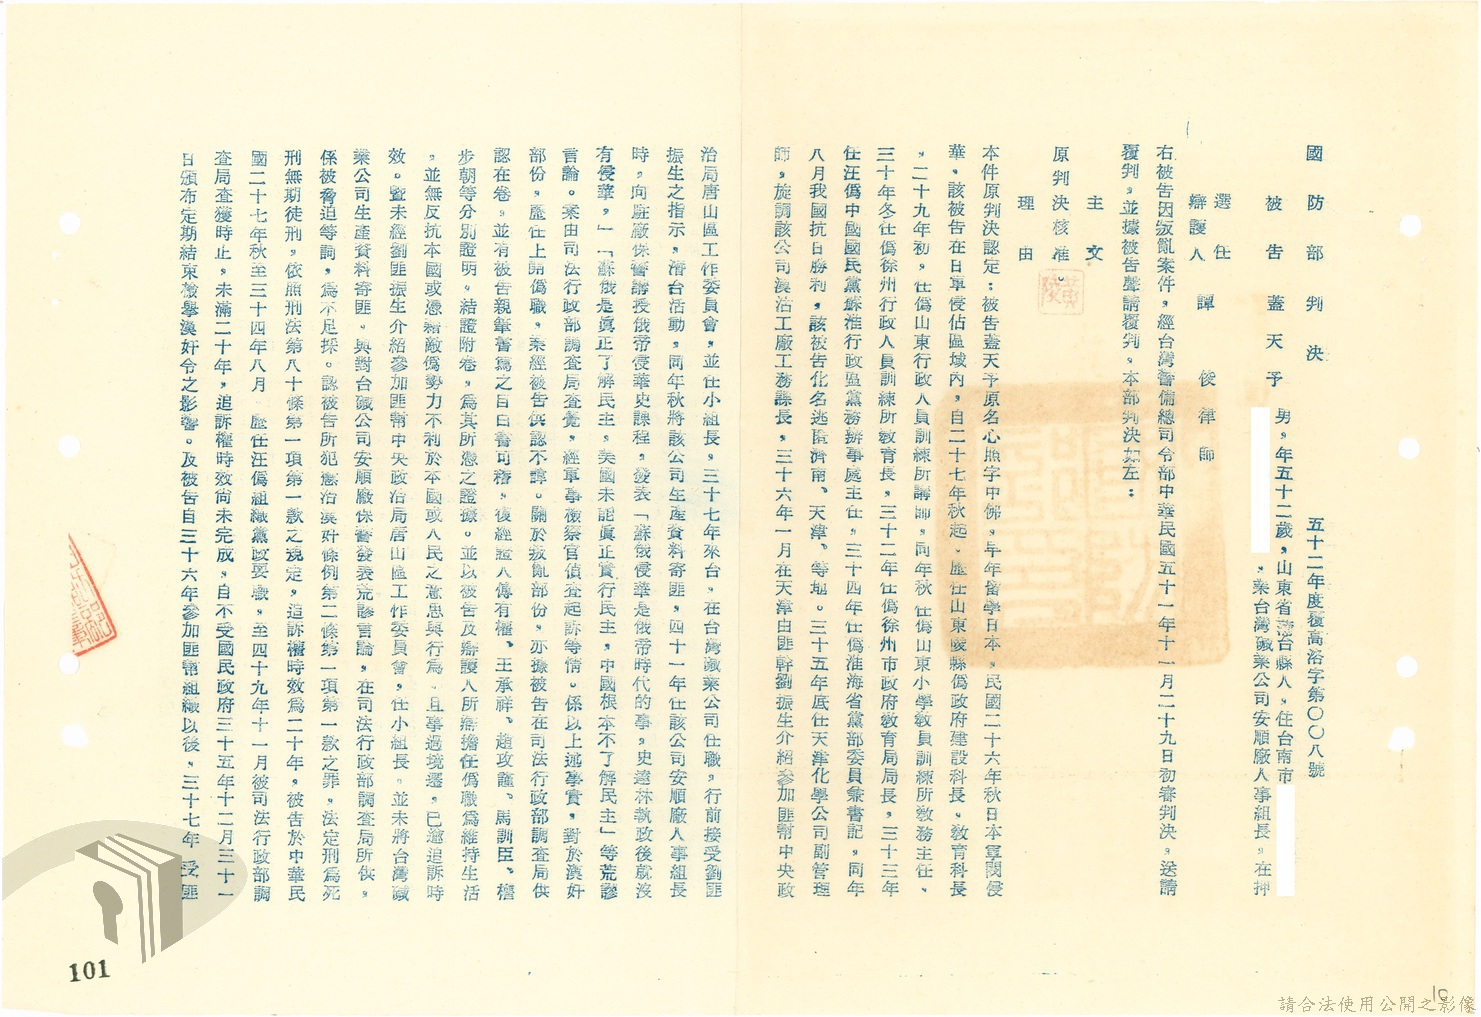 國防部判決
五十二年度覆高洛字第〇〇八號
被告蓋天予
男，年五十二歲，山東省
縣人，住台南市
，業台灣鹼業公司安順廠人事組長，在押
選任
辯護人
譚俊律師
右被告因叛亂案件，經台灣警備總司令部中華民國五十一年十一月二十九日初審判決，送請
覆判，並據被告聲請覆判，本部判決如左：
主文
原判決核准。
理由
本件原判決認定：被告蓋天予原名心照字中佛，早年留學日本，民國二十六年秋日本軍閥侵
華，該被告在日軍侵佔區域內，自二十七年秋起，歷任山東陵縣偽政府建設科長，敎育科長
，二十九年初，任偽山東行政人員訓練所講師，同年秋任偽山東小學敎員訓練所敎務主任，
三十年冬任偽徐州行政人員訓練所敎育長，三十二年任偽徐州市政府敎育局局長，三十三年
任汪偽中國國民黨蘇淮行政區黨務辦事處主任，三十四年任偽淮海省黨部委員兼書記，同年
八月我國抗日勝利，該被告化名逃匿濟南、天津、等地。三十五年底任天津化學公司副管理
師，旋調該公司漢沽工廠工務課長，三十六年一月在天津由匪幹劉振生介紹參加匪幫中央政
治局唐山區工作委員會，並任小組長，三十七年來台，在台灣鹼業公司任職，行前接受劉匪
振生之指示，潛台活動，同年秋將該公司生產資料寄匪，四十一年任該公司安順廠人事組長
時，向駐廠保警講授俄帝侵華史課程，發表「蘇俄侵華是俄帝時代的事，史達林執政後就沒
有侵華，」「蘇俄是眞正了解民主，美國未能眞正實行民主，中國根本不了解民主」等荒謬
言論。案由司法行政部調查局查覺，經軍事檢察官偵查起訴等情。係以上述事實，對於漢奸
部份，歷任上開偽職，業經被告供認不諱。關於叛亂部份，亦據被告在司法行政部調查局供
認在卷，並有被告親筆書寫之自白書可稽，復經證人傳有權、王承祥、趙玫謹、馬訓臣、檀
步朝等分別證明。結證附卷，為其所憑之證據。並以被告及辯護人所辯擔任偽職為維持生活
，並無反抗本國或憑藉敵偽勢力不利於本國或人民之意思與行為。且事過境遷，已逾追訴時
效。暨未經劉匪振生介紹參加匪幫中央政治局唐山區工作委員會，任小組長。並未將台灣鹼
業公司生產資料寄匪。與對台鹼公司安順廠保警發表荒謬言論，在司法行政部調查局所供，
係被脅迫等詞，為不足採。認被告所犯懲治漢奸條例第二條第一項第一款之罪，法定刑為死
刑無期徒刑，依照刑法第八十條第一項第一款之規定，追訴權時效為二十年，被告於中華民
國二十七年秋至三十四年八月，歷任汪偽組織黨政要職，至四十九年十一月被司法行政部調
查局查獲時止，未滿二十年，追訴權時效尚未完成，自不受國民政府三十五年十二月三十一
日頒布定期結束檢舉漢奸令之影響。及被告自三十六年參加匪幫組織以後，三十七年受匪
101
請合法使用公開之影像